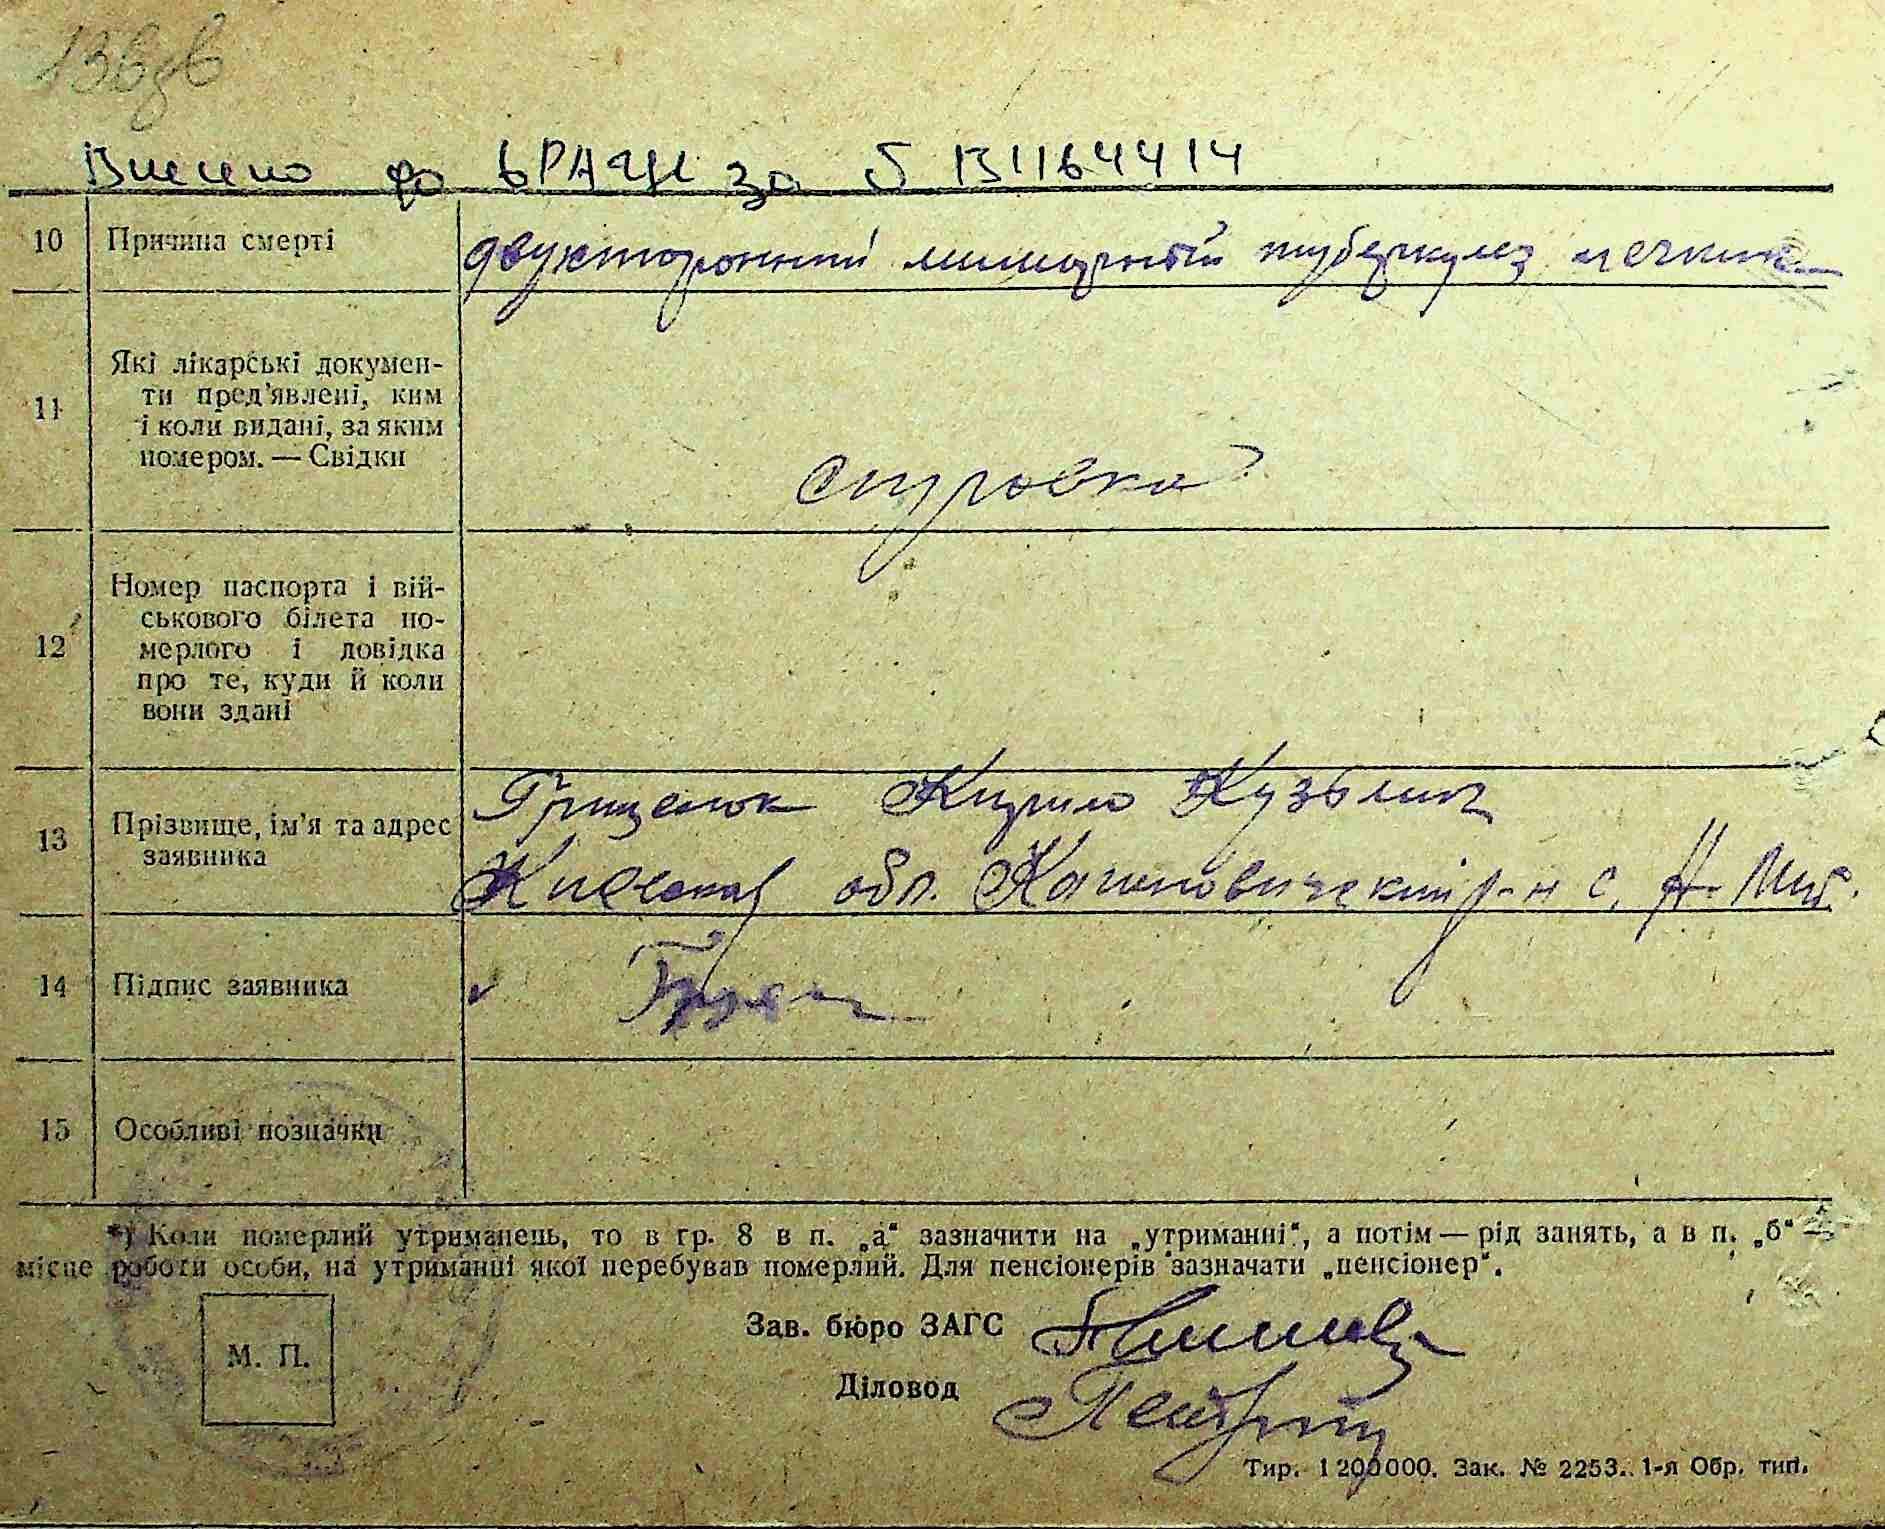 Внесено до ДРАЦС за
10 Причина смерті двухсторонний милиарный туберкулез легких
11 Які лікарські докумен-
ти пред'явлені, ким
і коли видані, за яким
номером. — Свідки
справка
12 Номер паспорта і вій-
ськового білета по-
мерлого і довідка
про те, куди й коли
вони здані
Грищенок Кирило Кузьмич
13 Прізвище, ім'я та адрес
заявника
Киевская обл. Кагановический р-н с.
14 Підпис заявника
15 Особливі позначки
*) Коли померлий утриманець, то в гр. 8 в п. „а“ зазначити на „утриманні“, а потім — рід занять, а в п. „б“
місце роботи особи, на утриманні якої перебував померлий. Для пенсіонерів зазначати „пенсіонер“.
Зав. бюро ЗАГС
М. П.
Діловод
Тир. 1200000. Зак. № 2253. 1-я Обр. тип.